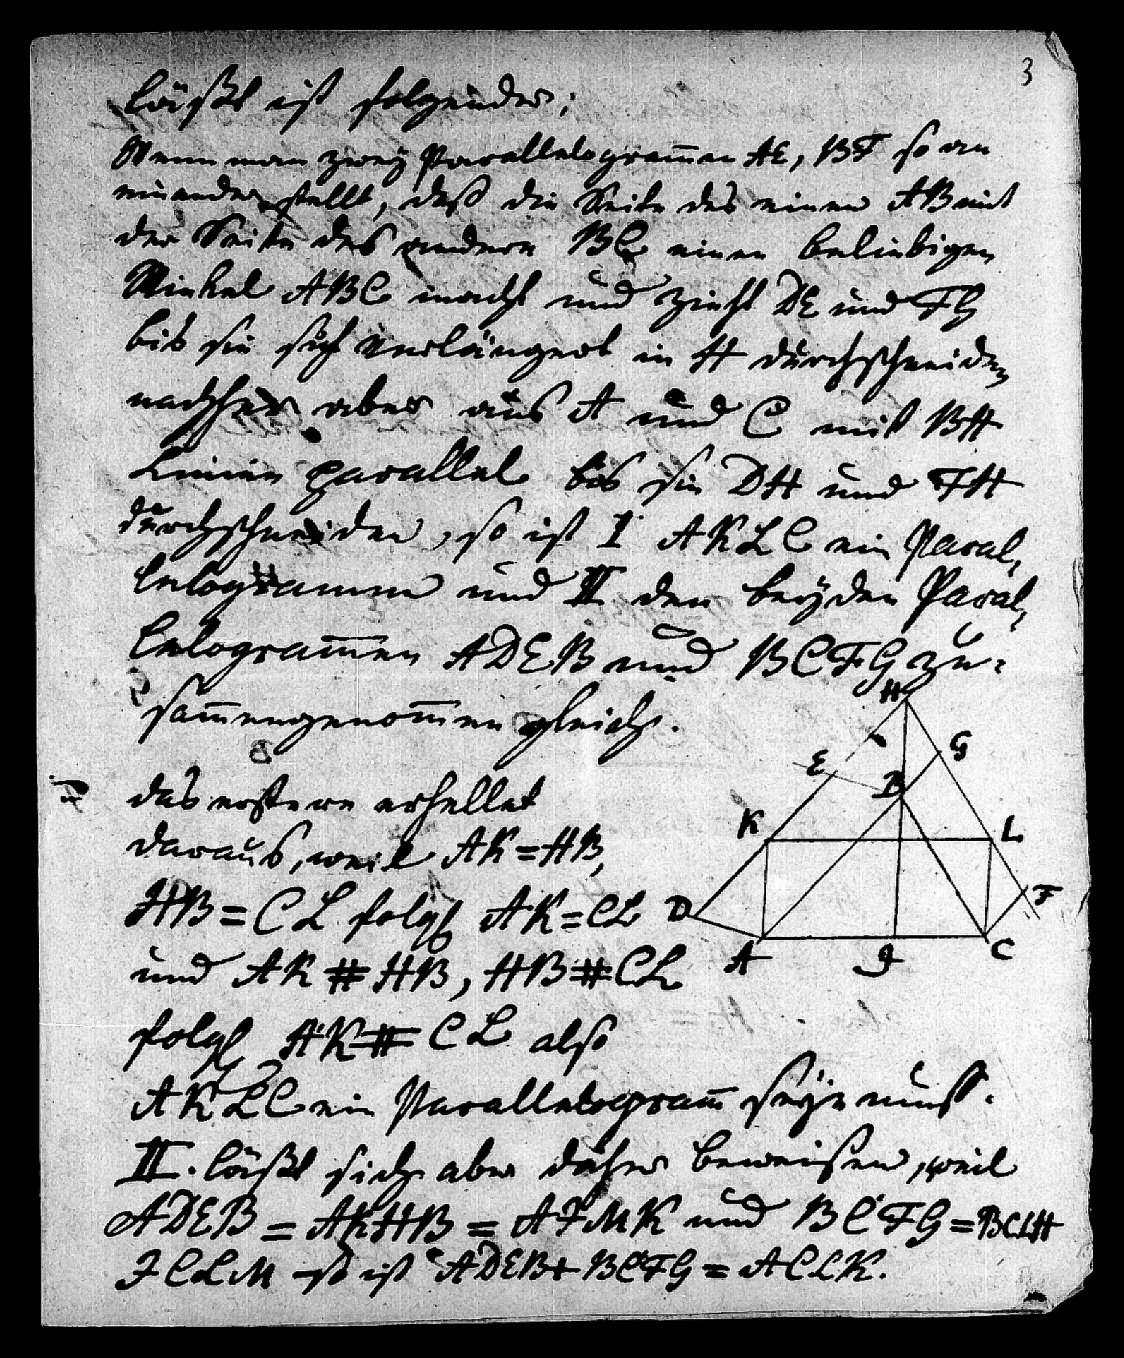 3
läßt ist folgender;
Wenn man zwey Parallelogram̅en AE, BF so an
einander stellt, daß die Seite des einen AB mit
der Seite des andern BC einen beliebigen
Winkel ABC macht und zieht DE und FG
bis sie sich verlängert in H durchschneiden
nachher aber aus A und C mit BH
Linien parallel bis sie DH und FH
durchschneiden, so ist I AKLC ein Paral,
lelogramm und II den beyden Paral,
lelogram̅en ADEB und BCFG zu-
sam̅engenom̅en gleich.
das erstere erhellet
daraus, weil AK=HB,
HB=CL folgl AK=CL
und AK # HB, HB # CL
folgl AK # CL also
AKLC ein Parallelogram̅ seyn muß.
II. läßt sich aber daher beweisen, weil
ADEB = AKHB = AIMK und BCFG = BCLH
ICLM so ist ADEB + BCFG = ACLK.
H
G
E
B
K
L
D
F
A
I
C